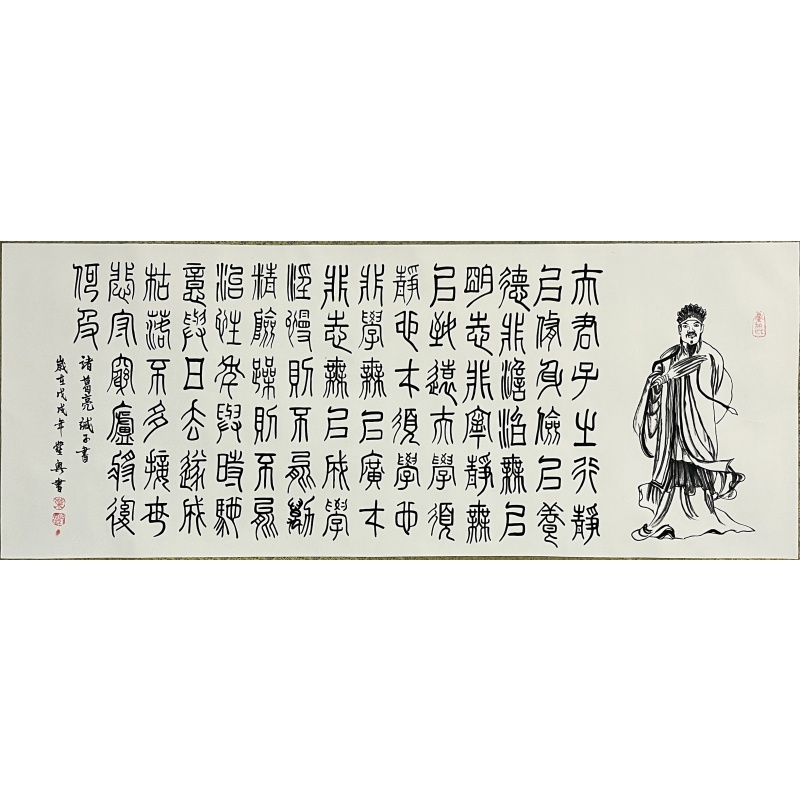 夫君子之行靜
以修身儉以養
德非澹泊無以
明志非寧靜無
以致遠夫學須
靜也才須學也
非學無以廣才
非志無以成學
淫慢則不能勵
精險躁則不能
治性年與時馳
意與日去遂成
枯落不多接世
悲守窮廬將復
何及
諸葛亮誡子書
歲在戊戌年書